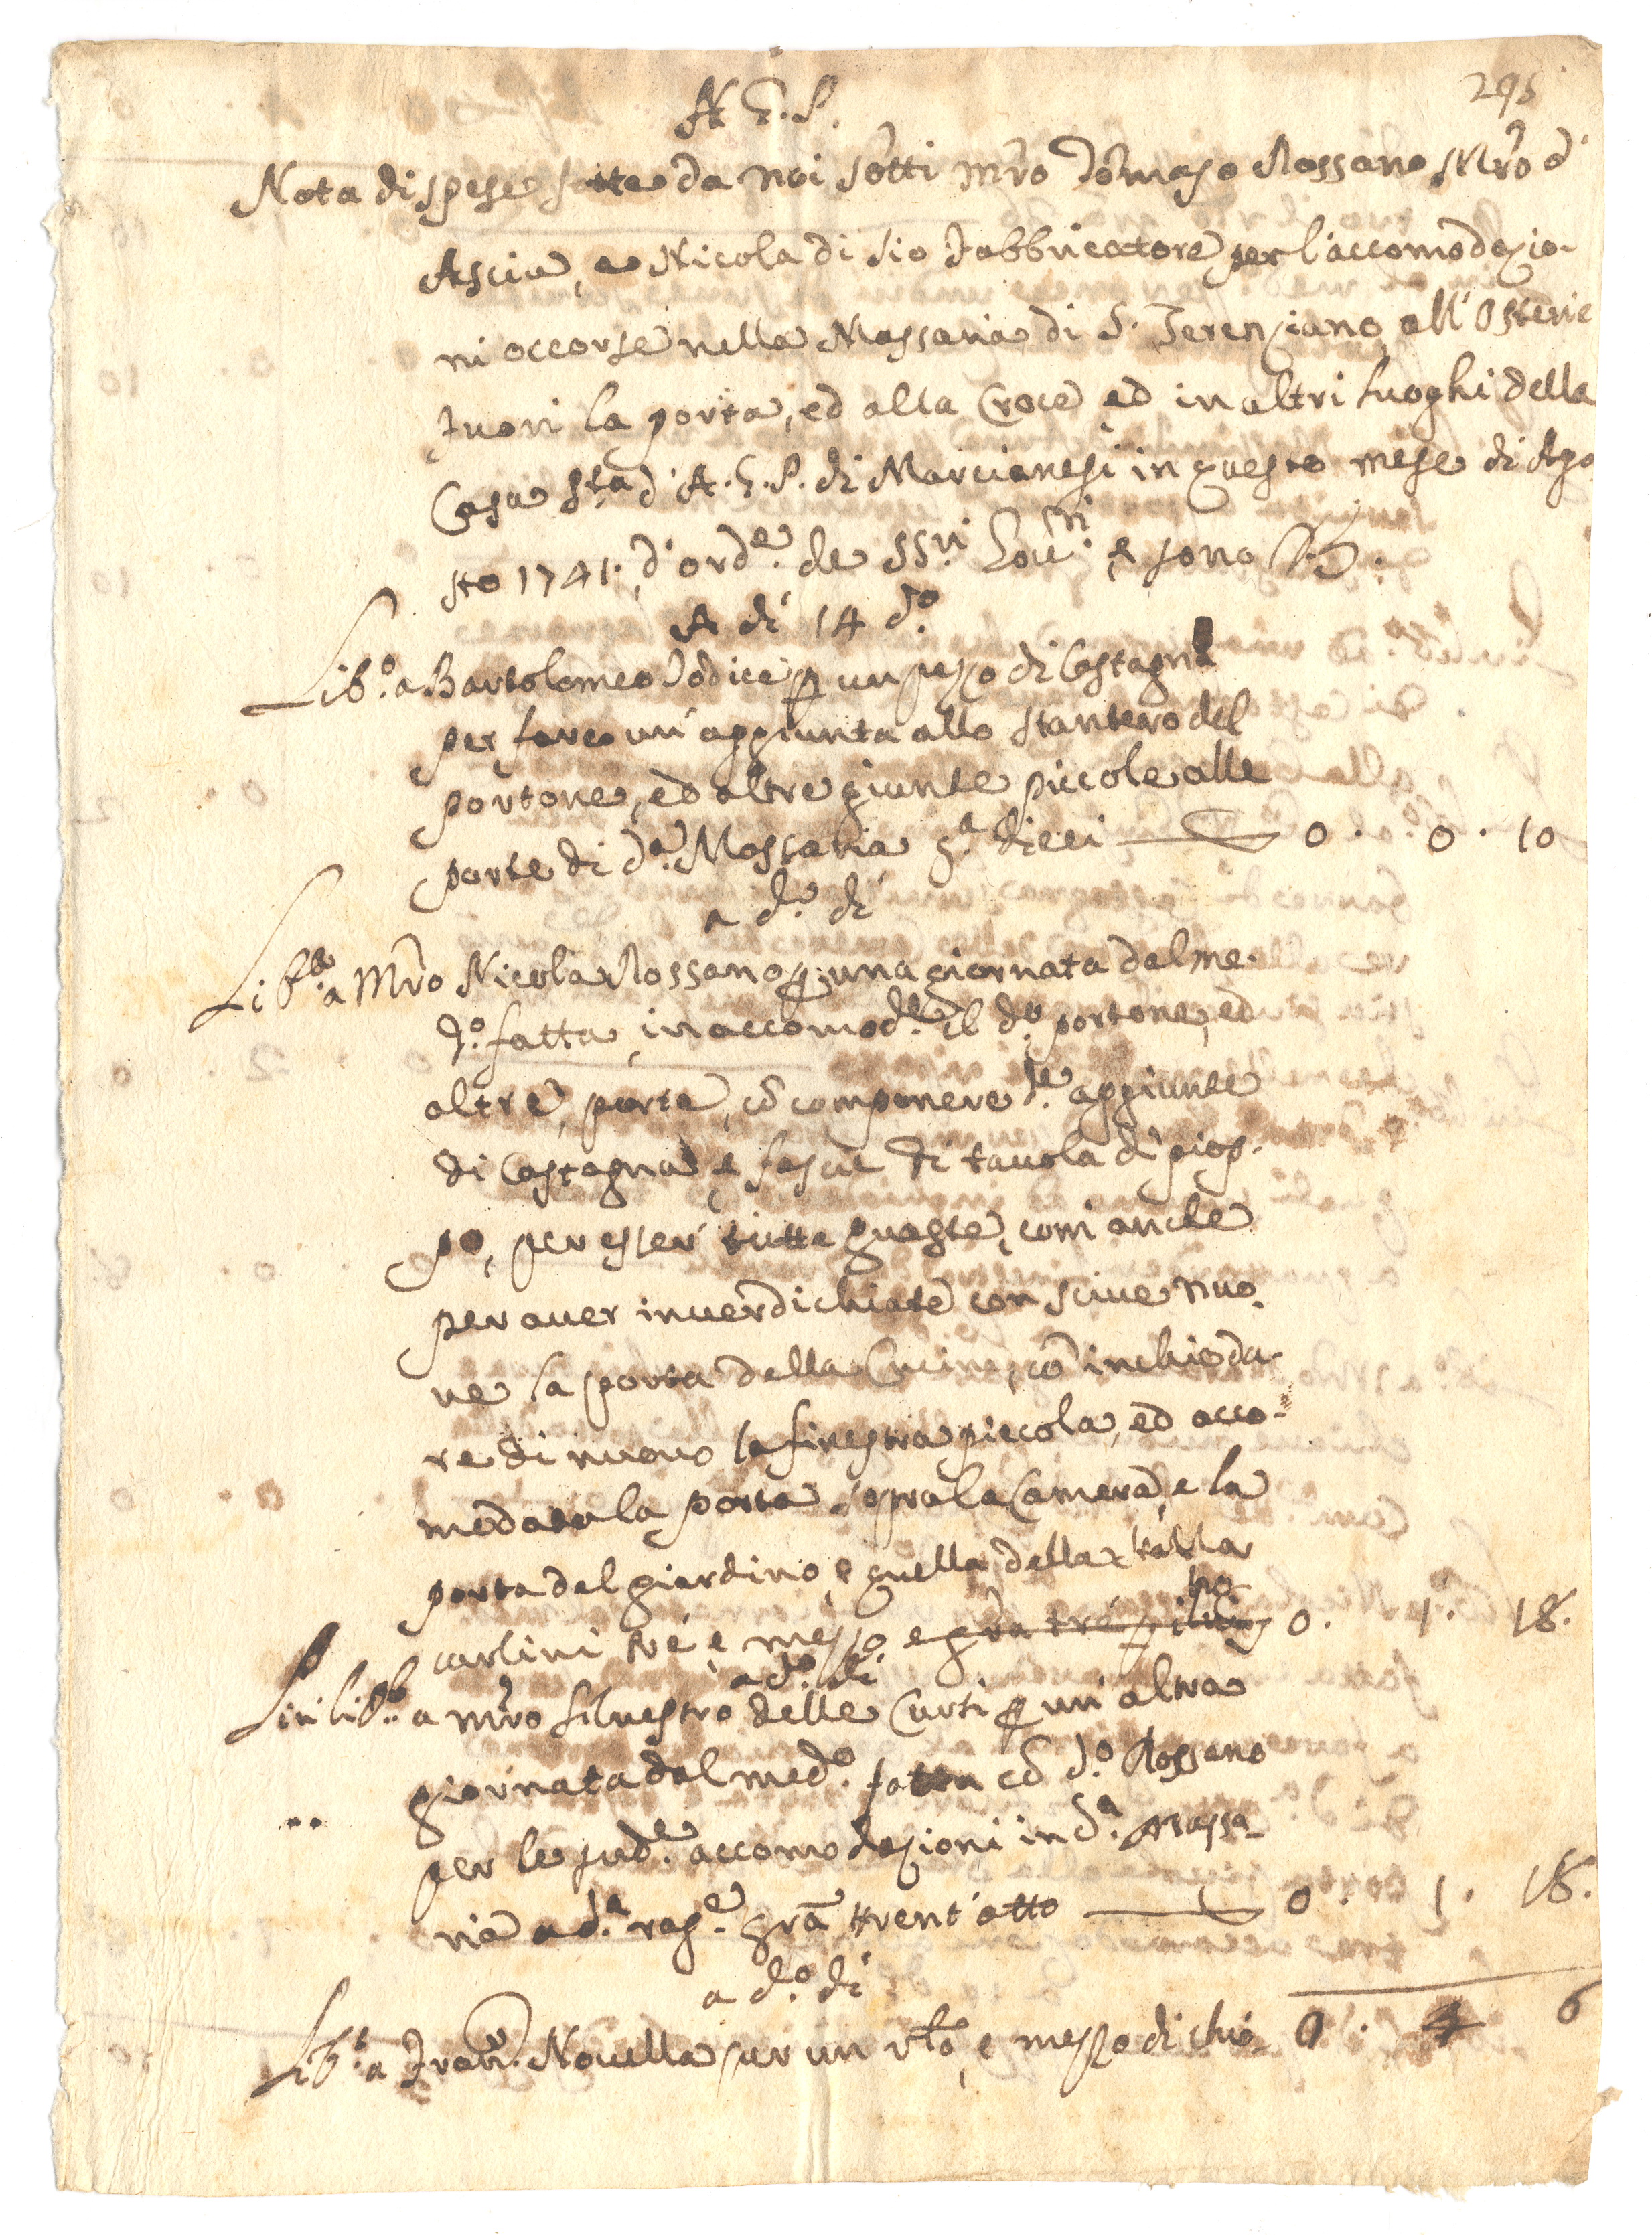 295
A. G. P.
Nota di spese fatte da noi sotti Mro Tomaso Rossano Mro d'
Ascia, e Nicola di Sio Fabbricatore per l'accomodazio-
ni occorse nella Massaria di S. Terenziano, all'Osterie
fuori la porta, ed alla Croce ed in altri luoghi della
Casa Sta d'A. G. P. di Marcianesi in questo mese di Ago
sto 1741. d'orde. de SSri Goveri. e sono
A di 14 do.
Libo. a Bartolomeo Iodice p un pezzo di Castagna
per farci un'aggiunta allo stantero del
portone, ed altre giunte piccole alle
porte di da. Massaria ga. dieci 0. 0. 10
a do. di
Libo. a Mro Nicola Rossano p una giornata dal me-
do. fatta, in accomode. il do. portone, ed
altre porte, co componere de. aggiunte
di Castagna e fascie di tavola di piop-
po, per esser tutte guaste, com'anche
per aver inverdichiate con scive nuo-
ve la porta della Cucina, co inchioda-
re di nuovo la finestra piccola, ed acco-
modata la porta sopra la Camera, e la
porta del giardino, e quella della stalla
carlini tre, e mezzo e gra tre 0. 1. 18.
a do. di
Lib. a mro Silvestro delle Curti p un'altra
giornata dal medo. fatta co do. Rossano
per le sude. accomodazioni in da. Massa-
ria a da. rage. gra trent'otto 0. 1. 18.
a do. di
Libo. a Fran. Novella per un rlo, e mezzo di chio- 0. 4 6